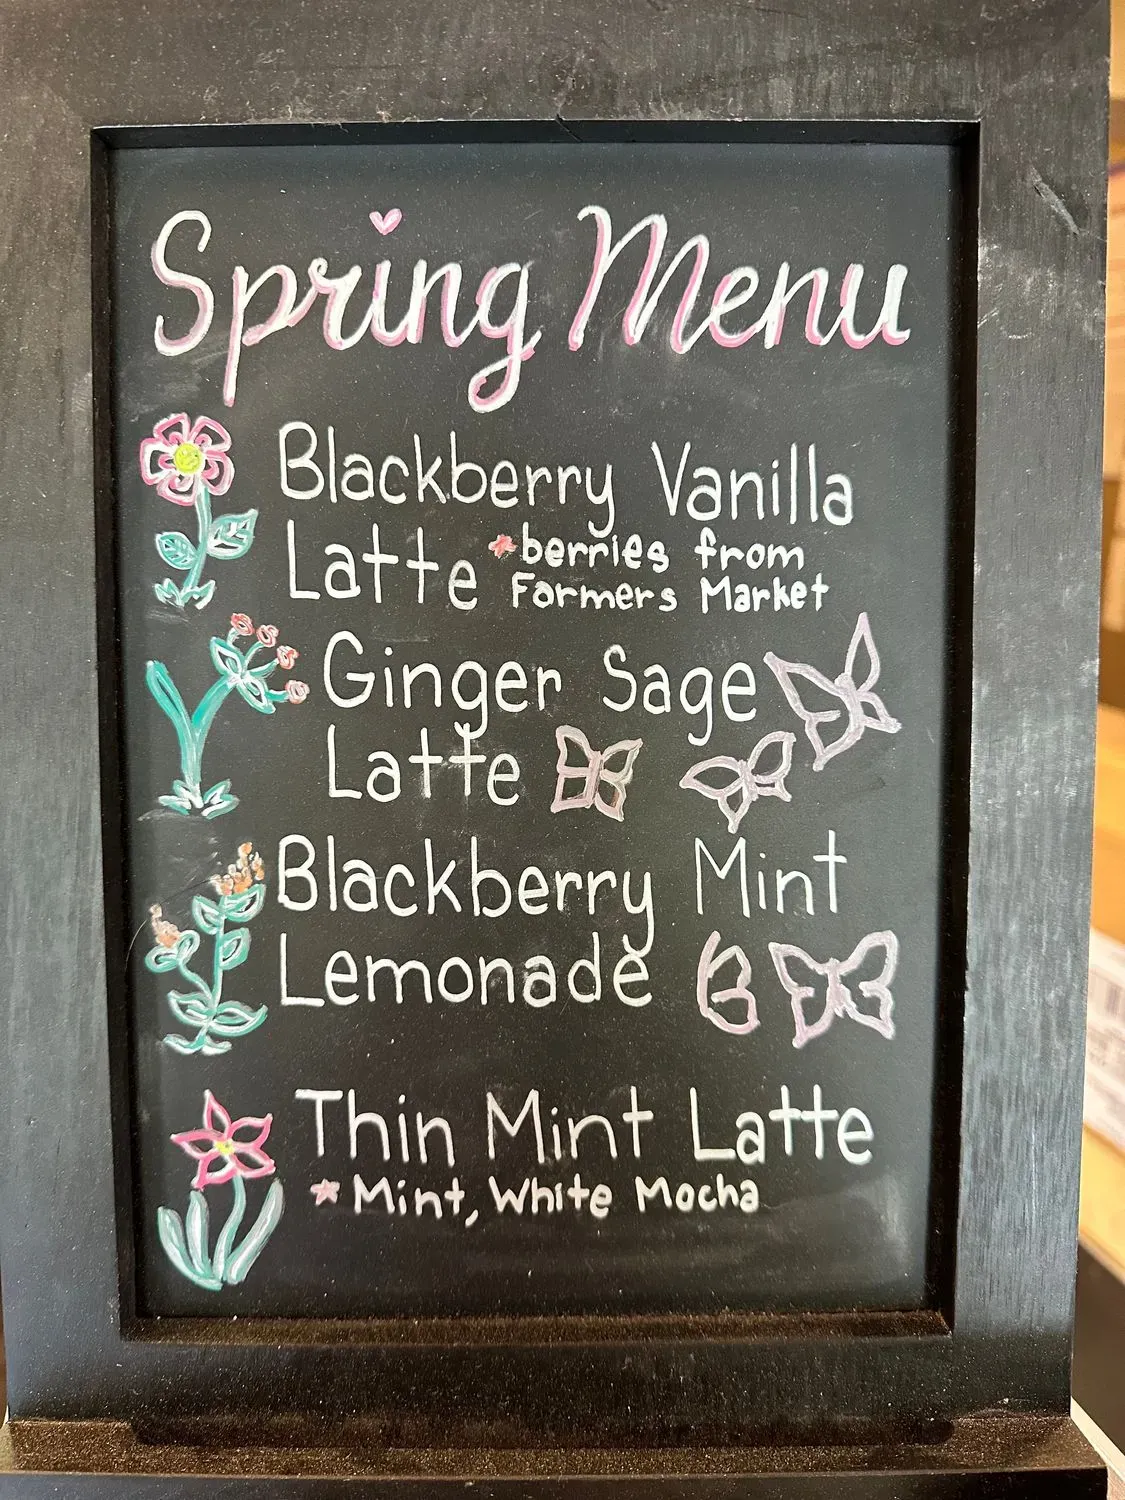 Spring Menu
Blackberry Vanilla
Latte *berries from
Farmers Market
Ginger Sage
Latte
Blackberry Mint
Lemonade
Thin Mint Latte
*Mint, White Mocha